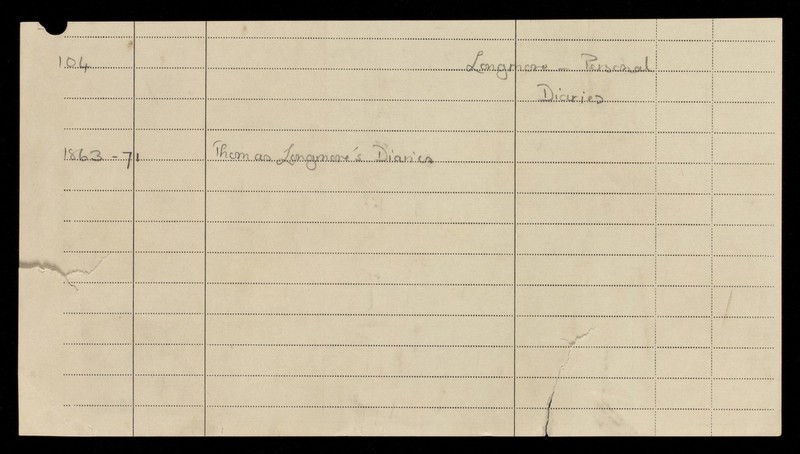 104 Longmore - Personal
Diaries
1863-71 Thomas Longmore's Diaries